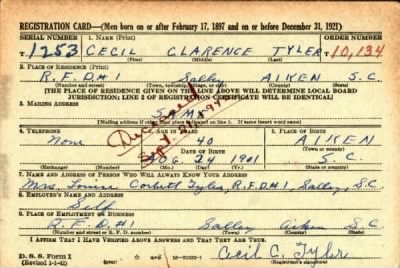 REGISTRATION CARD—(Men born on or after February 17, 1897 and on or before December 31, 1921)
SERIAL NUMBER 1. NAME (Print) ORDER NUMBER
T 1253 CECIL CLARENCE TYLER T 10,134
(First) (Middle) (Last)
2. PLACE OF RESIDENCE (Print)
R.F.D#1 Salley AIKEN S.C.
(Number and street) (Town, township, village, or city) (County) (State)
[THE PLACE OF RESIDENCE GIVEN ON THE LINE ABOVE WILL DETERMINE LOCAL BOARD
JURISDICTION; LINE 2 OF REGISTRATION CERTIFICATE WILL BE IDENTICAL]
3. MAILING ADDRESS
SAME
[Mailing address if other than place indicated on line 2. If same insert word same]
Deceased
4. TELEPHONE 5. AGE IN YEARS 6. PLACE OF BIRTH
None 40 AIKEN
DATE OF BIRTH (Town or county)
AUG. 24 1901 S.C.
(Exchange) (Number) (Mo.) (Day) (Yr.) (State or country)
7. NAME AND ADDRESS OF PERSON WHO WILL ALWAYS KNOW YOUR ADDRESS
Mrs. Louise Corbett Tyler, R.F.D#1, Salley, S.C
8. EMPLOYER'S NAME AND ADDRESS
Self
9. PLACE OF EMPLOYMENT OR BUSINESS
R.F.D#1 Salley Aiken S.C.
(Number and street or R. F. D. number) (Town) (County) (State)
I AFFIRM THAT I HAVE VERIFIED ABOVE ANSWERS AND THAT THEY ARE TRUE.
D. S. S. Form 1 Cecil C. Tyler
(Revised 1-1-42) (Registrant's signature)